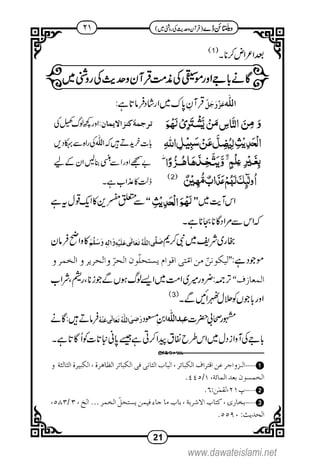 ۲۱
وظائفِ دین (قرآن وحدیث کی روشنی میں)
بعد اعراض کرنا۔(1)
گانے باجے اور موسیقی کی مذمت قرآن وحدیث کی روشنی میں
اللہ عَزَّوَجَلَّ قرآنِ پاک میں ارشاد فرماتا ہے:
وَ مِنَ النَّاسِ مَنْ یَّشْتَرِیْ لَهْوَ
الْحَدِیْثِ لِیُضِلَّ عَنْ سَبِیْلِ اللّٰهِ
بِغَیْرِ عِلْمٍ ۖۗ وَّ یَتَّخِذَهَا هُزُوًا ؕ
اُولٰٓىٕكَ لَهُمْ عَذَابٌ مُّهِیْنٌ (2)
ترجمۂ کنز الایمان: اور کچھ لوگ کھیل کی
بات خریدتے ہیں کہ اللہ کی راہ سے بہکا دیں
بے سمجھے اور اسے ہنسی بنالیں ان کے لیے
ذلت کا عذاب ہے۔
اس آیت میں ’’لَهْوَ الْحَدِیْثِ‘‘ سے متعلق مفسرین کا ایک قول یہ ہے
کہ اس سے مراد گانا بجانا ہے۔
بخاری شریف میں نبی کریم صَلَّی اللّٰہُ تَعَالٰی عَلَیْہِ وَاٰلِہٖ وَسَلَّم کا واضح فرمان
موجود ہے: ’’لیکونن من امتی اقوام یستحلّون الحرّ والحریر و الخمر و
المعازف‘‘ ترجمہ: ضرور میری امت میں ایسے لوگ ہوں گے جو زنا، ریشم، شراب
اور باجوں کو حلال ٹھہرائیں گے۔(3)
مشہور صحابی حضرت عبد اللہ ابن مسعود رَضِیَ اللّٰہُ تَعَالٰی عَنْہُ فرماتے ہیں: گانے
باجے کی آواز دل میں اس طرح نفاق پیدا کرتی ہے جیسے پانی نباتات کو اُگاتا ہے۔
1 ......الزواجر عن اقتراف الکبائر، الباب الثانی فی الکبائر الظاهرة، الکبیرة الثالثة و
الخمسون بعد المائة، ۱/۴۴۵.
2 ......پ۲۱، لقمٰن: ۶.
3 ......بخاری، کتاب الاشربة، باب ما جاء فیمن یستحلّ الخمر ... الخ، ۳/۵۸۳،
الحدیث: ۵۵۹۰.
21
www.dawateislami.net